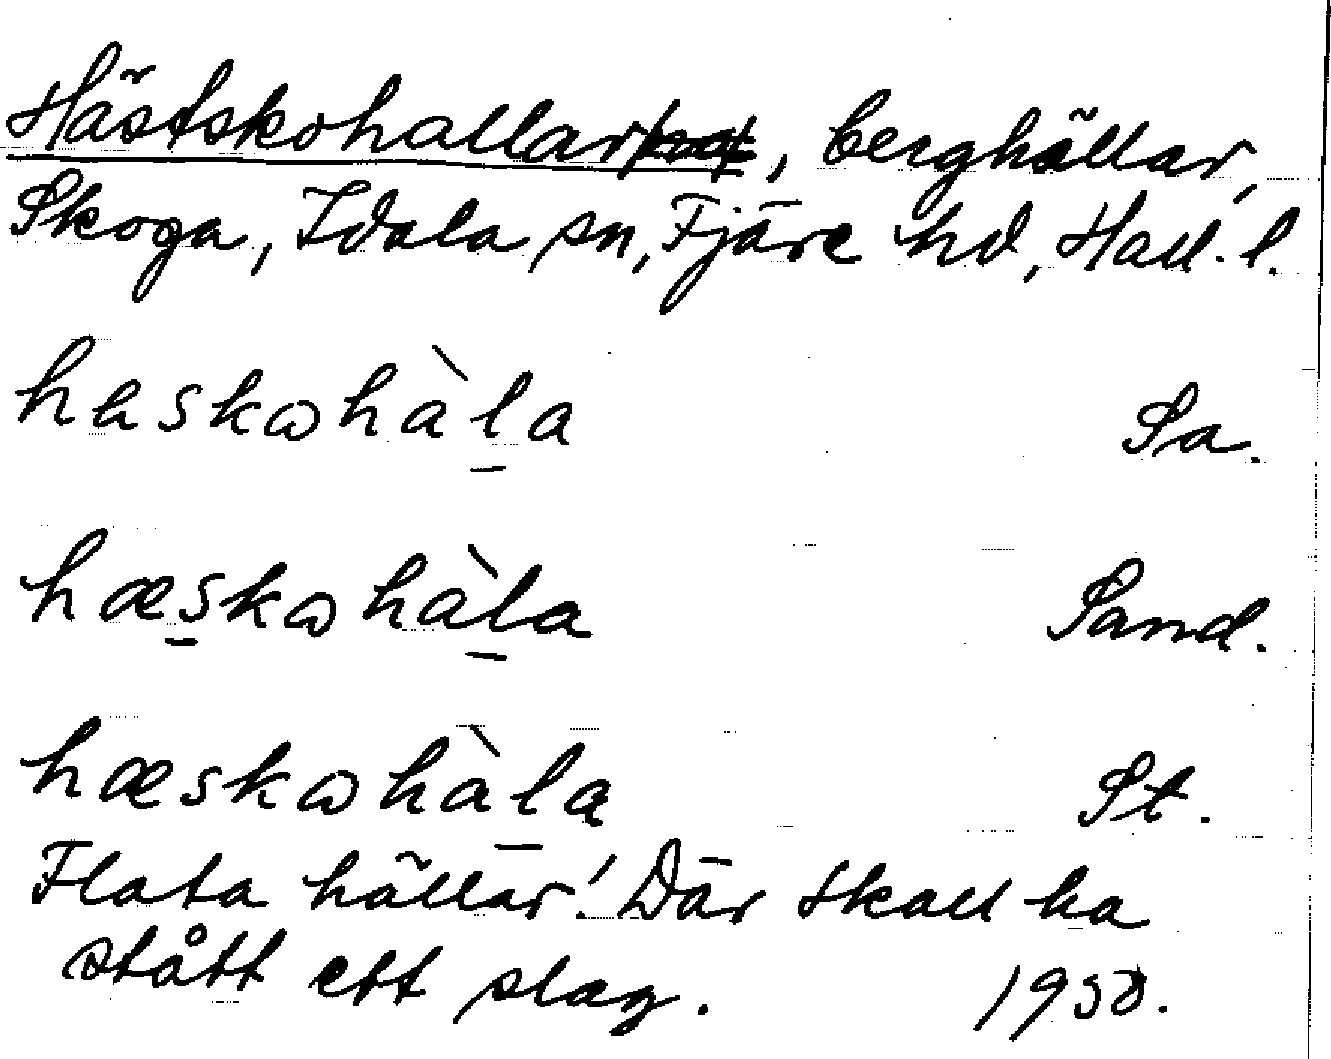 Hästskohallar, berghällar,
Skoga, Idala sn, Fjäre hd, Hall. l.
haskωhàla Sa.
hæskωhàla Sand.
hæskωhàla St.
Flata hällar! Där skall ha
stått ett slag. 1950.